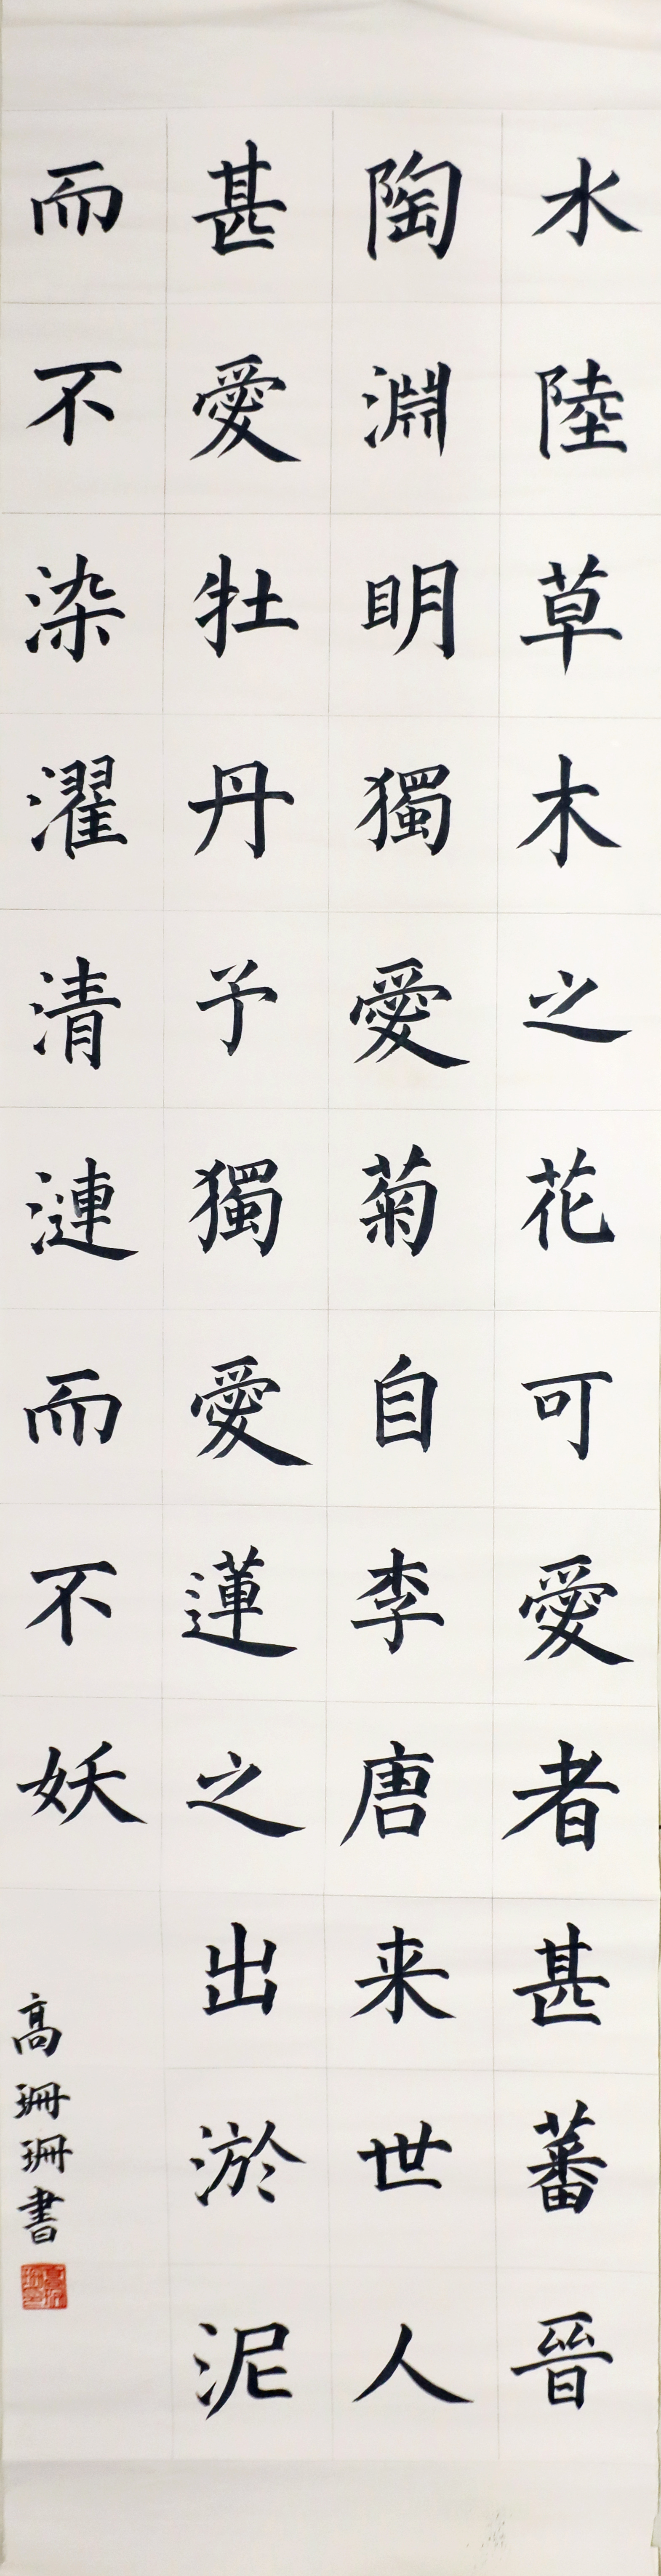 水陸草木之花可愛者甚蕃晉
陶淵明獨愛菊自李唐来世人
甚愛牡丹予獨愛蓮之出淤泥
而不染濯清漣而不妖
高珊珊書